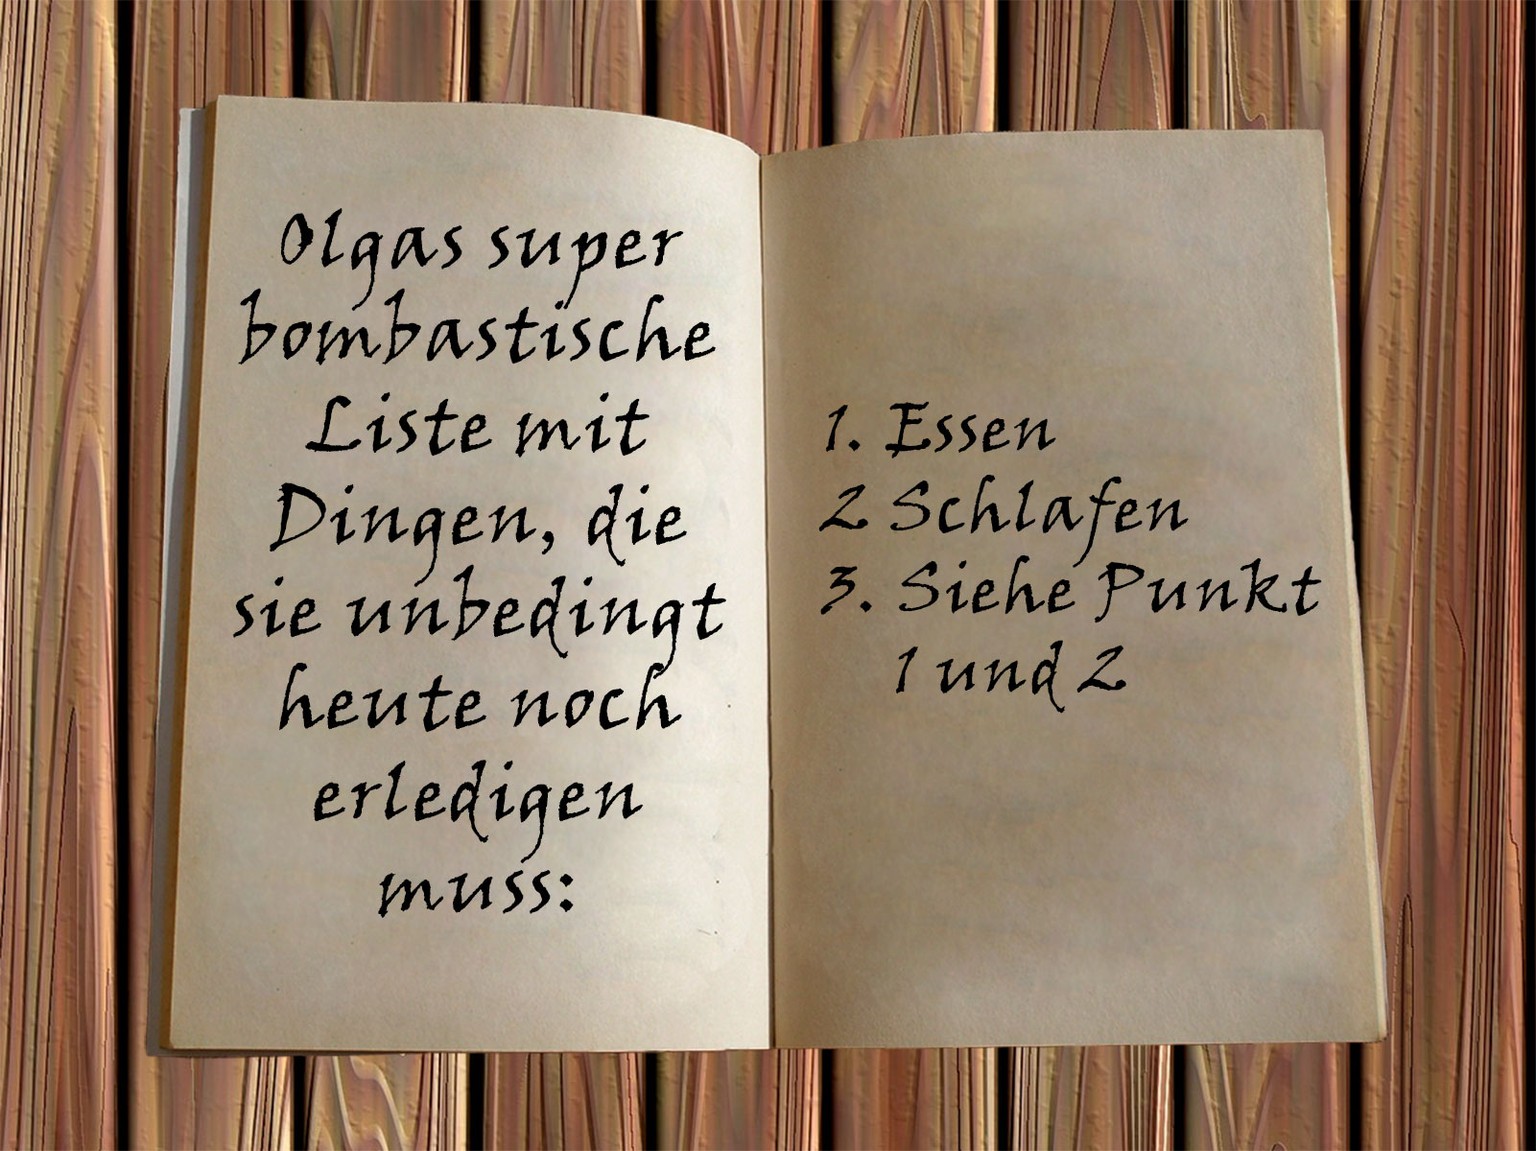 Olgas super
bombastische
Liste mit
Dingen, die
sie unbedingt
heute noch
erledigen
muss:
1. Essen
2 Schlafen
3. Siehe Punkt
1 und 2